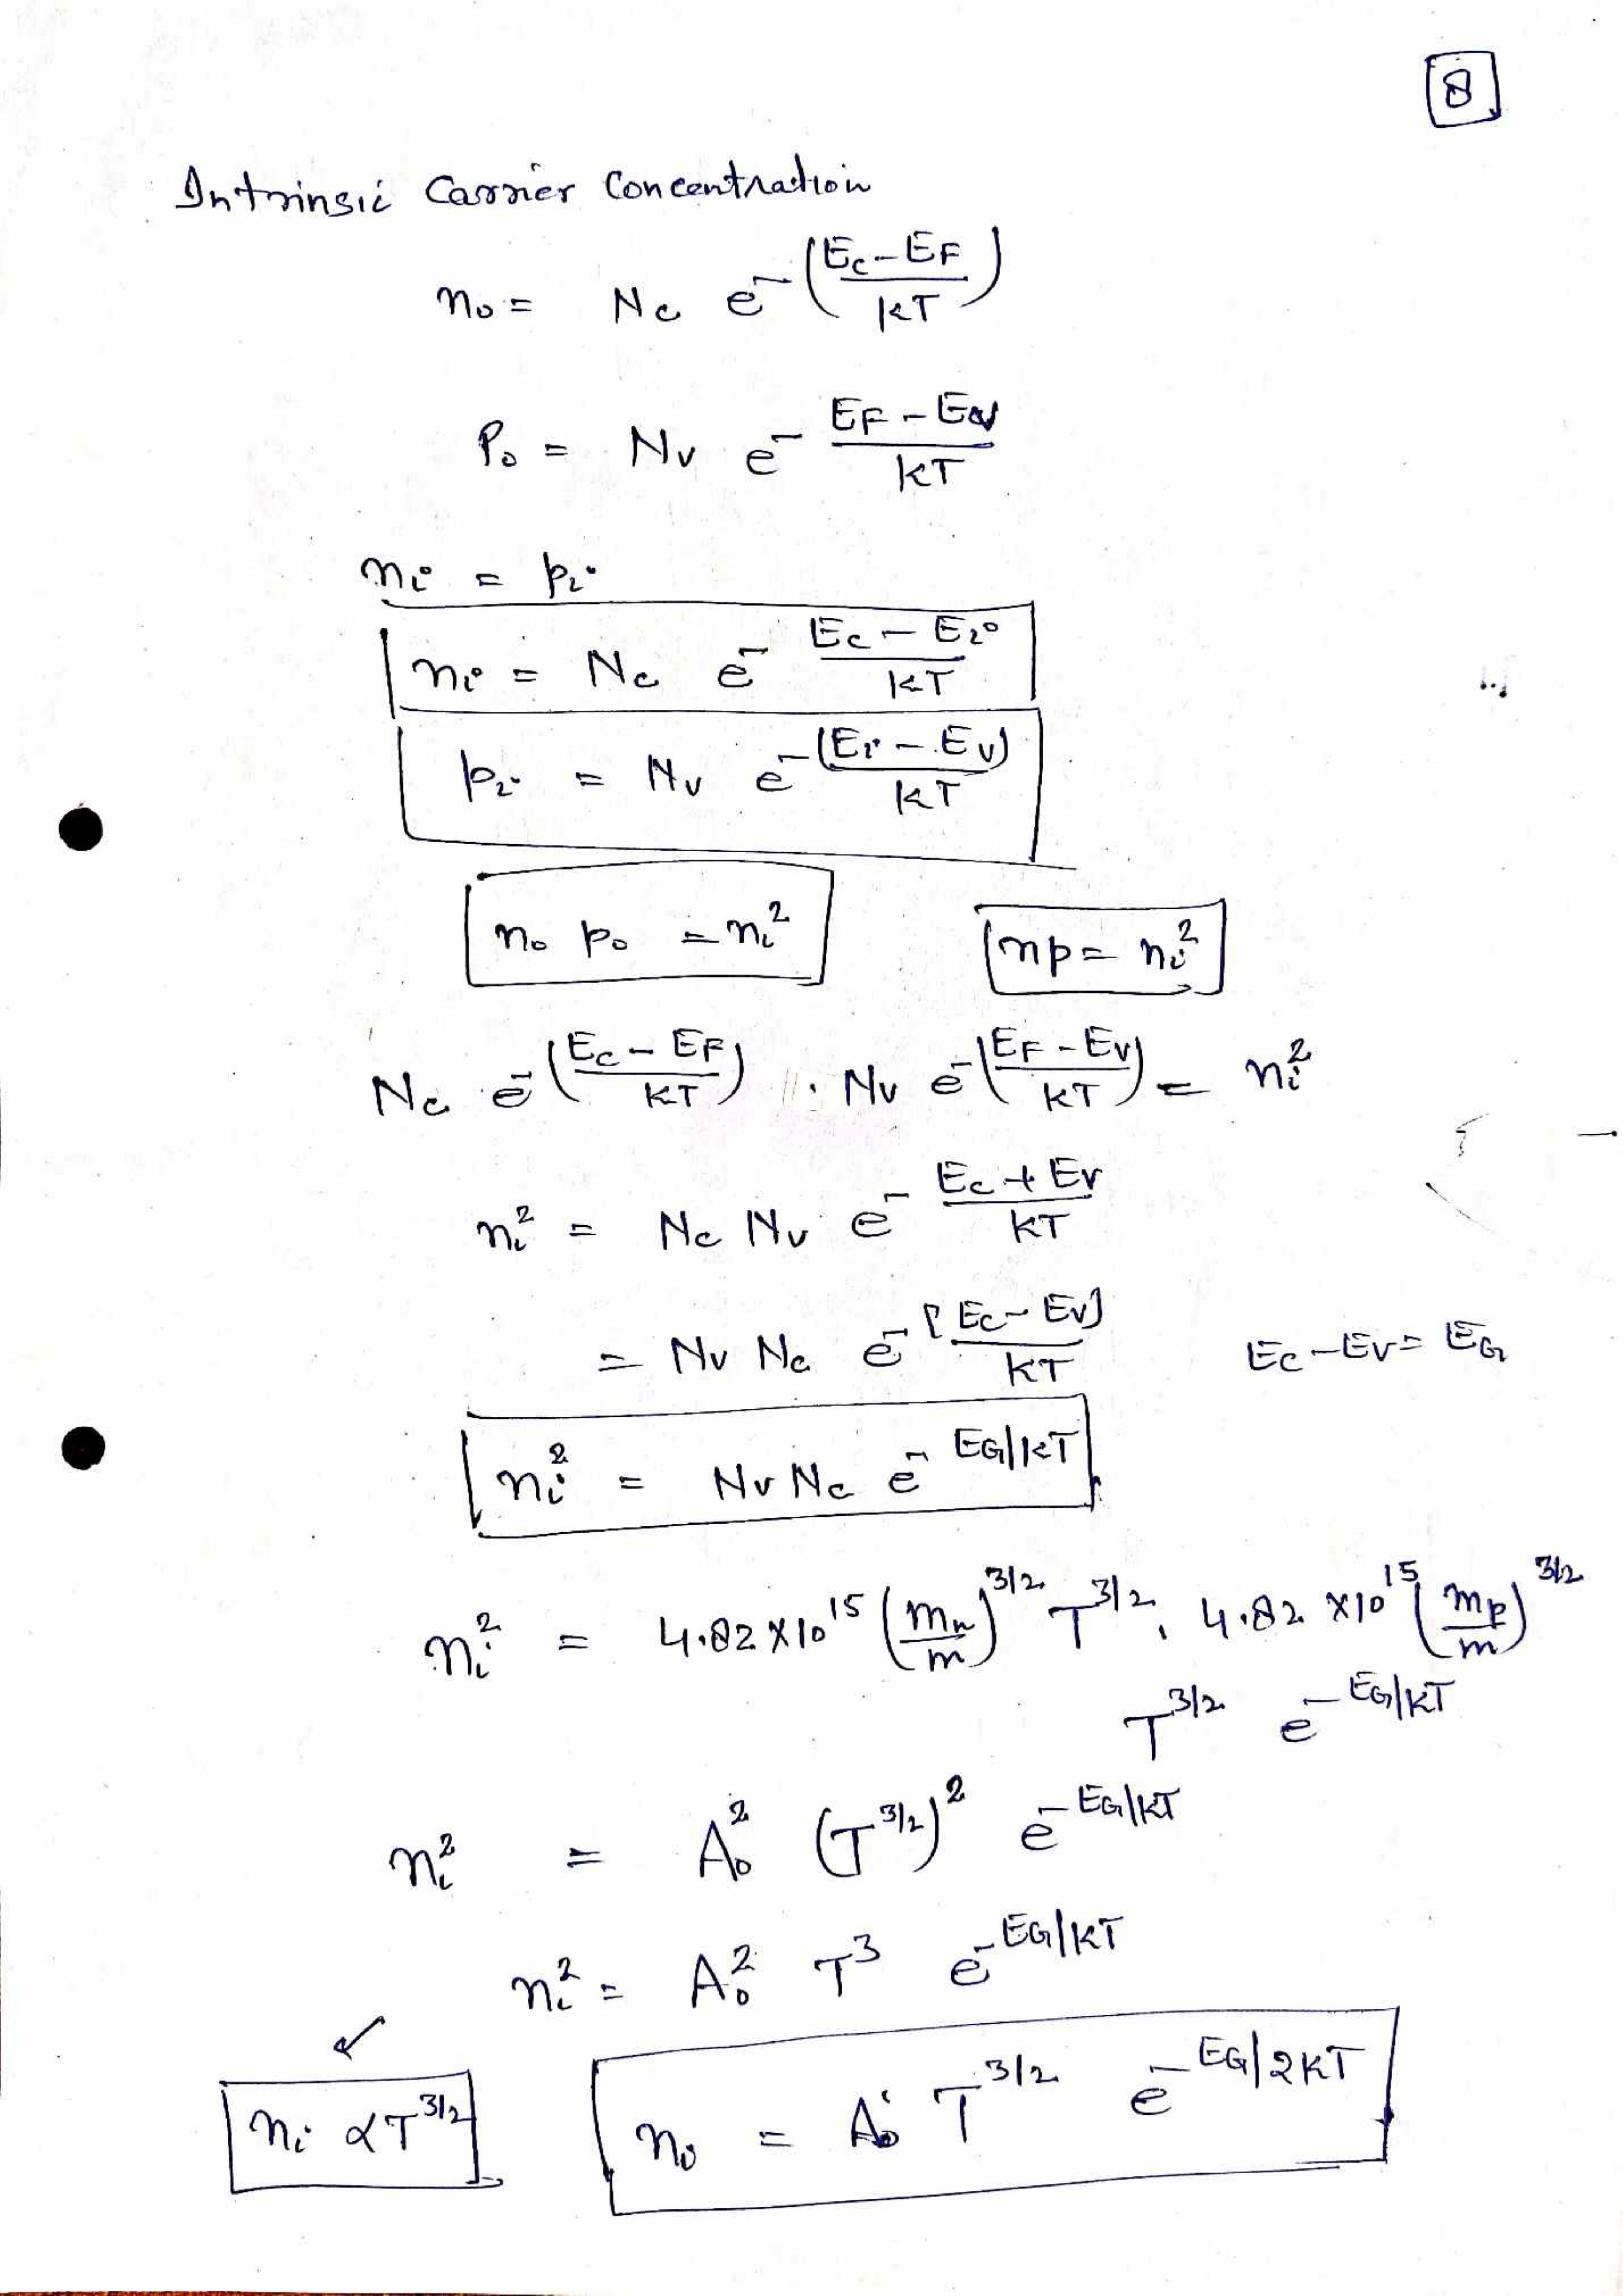 8
Intrinsic Carrier Concentration
n₀ = N_c e^-((E_c - E_F)/KT)
P₀ = N_v e^-(E_F - E_v)/KT
n_i = p_i
n_i = N_c e^-(E_c - E_i)/KT
p_i = N_v e^-(E_i - E_v)/KT
n₀ p₀ = n_i² np = n_i²
N_c e^-((E_c - E_F)/KT) . N_v e^-((E_F - E_v)/KT) = n_i²
n_i² = N_c N_v e^-(E_c + E_v)/KT
= N_v N_c e^-[E_c - E_v]/KT E_c - E_v = E_G
n_i² = N_v N_c e^-E_G/KT
n_i² = 4.82 X10^15 (m_n/m)^3/2 T^3/2 . 4.82 X10^15 (m_p/m)^3/2
T^3/2 e^-E_G/KT
n_i² = A₀² (T^3/2)² e^-E_G/KT
n_i² = A₀² T³ e^-E_G/KT
n_i ∝ T^3/2 n_i = A₀ T^3/2 e^-E_G/2KT